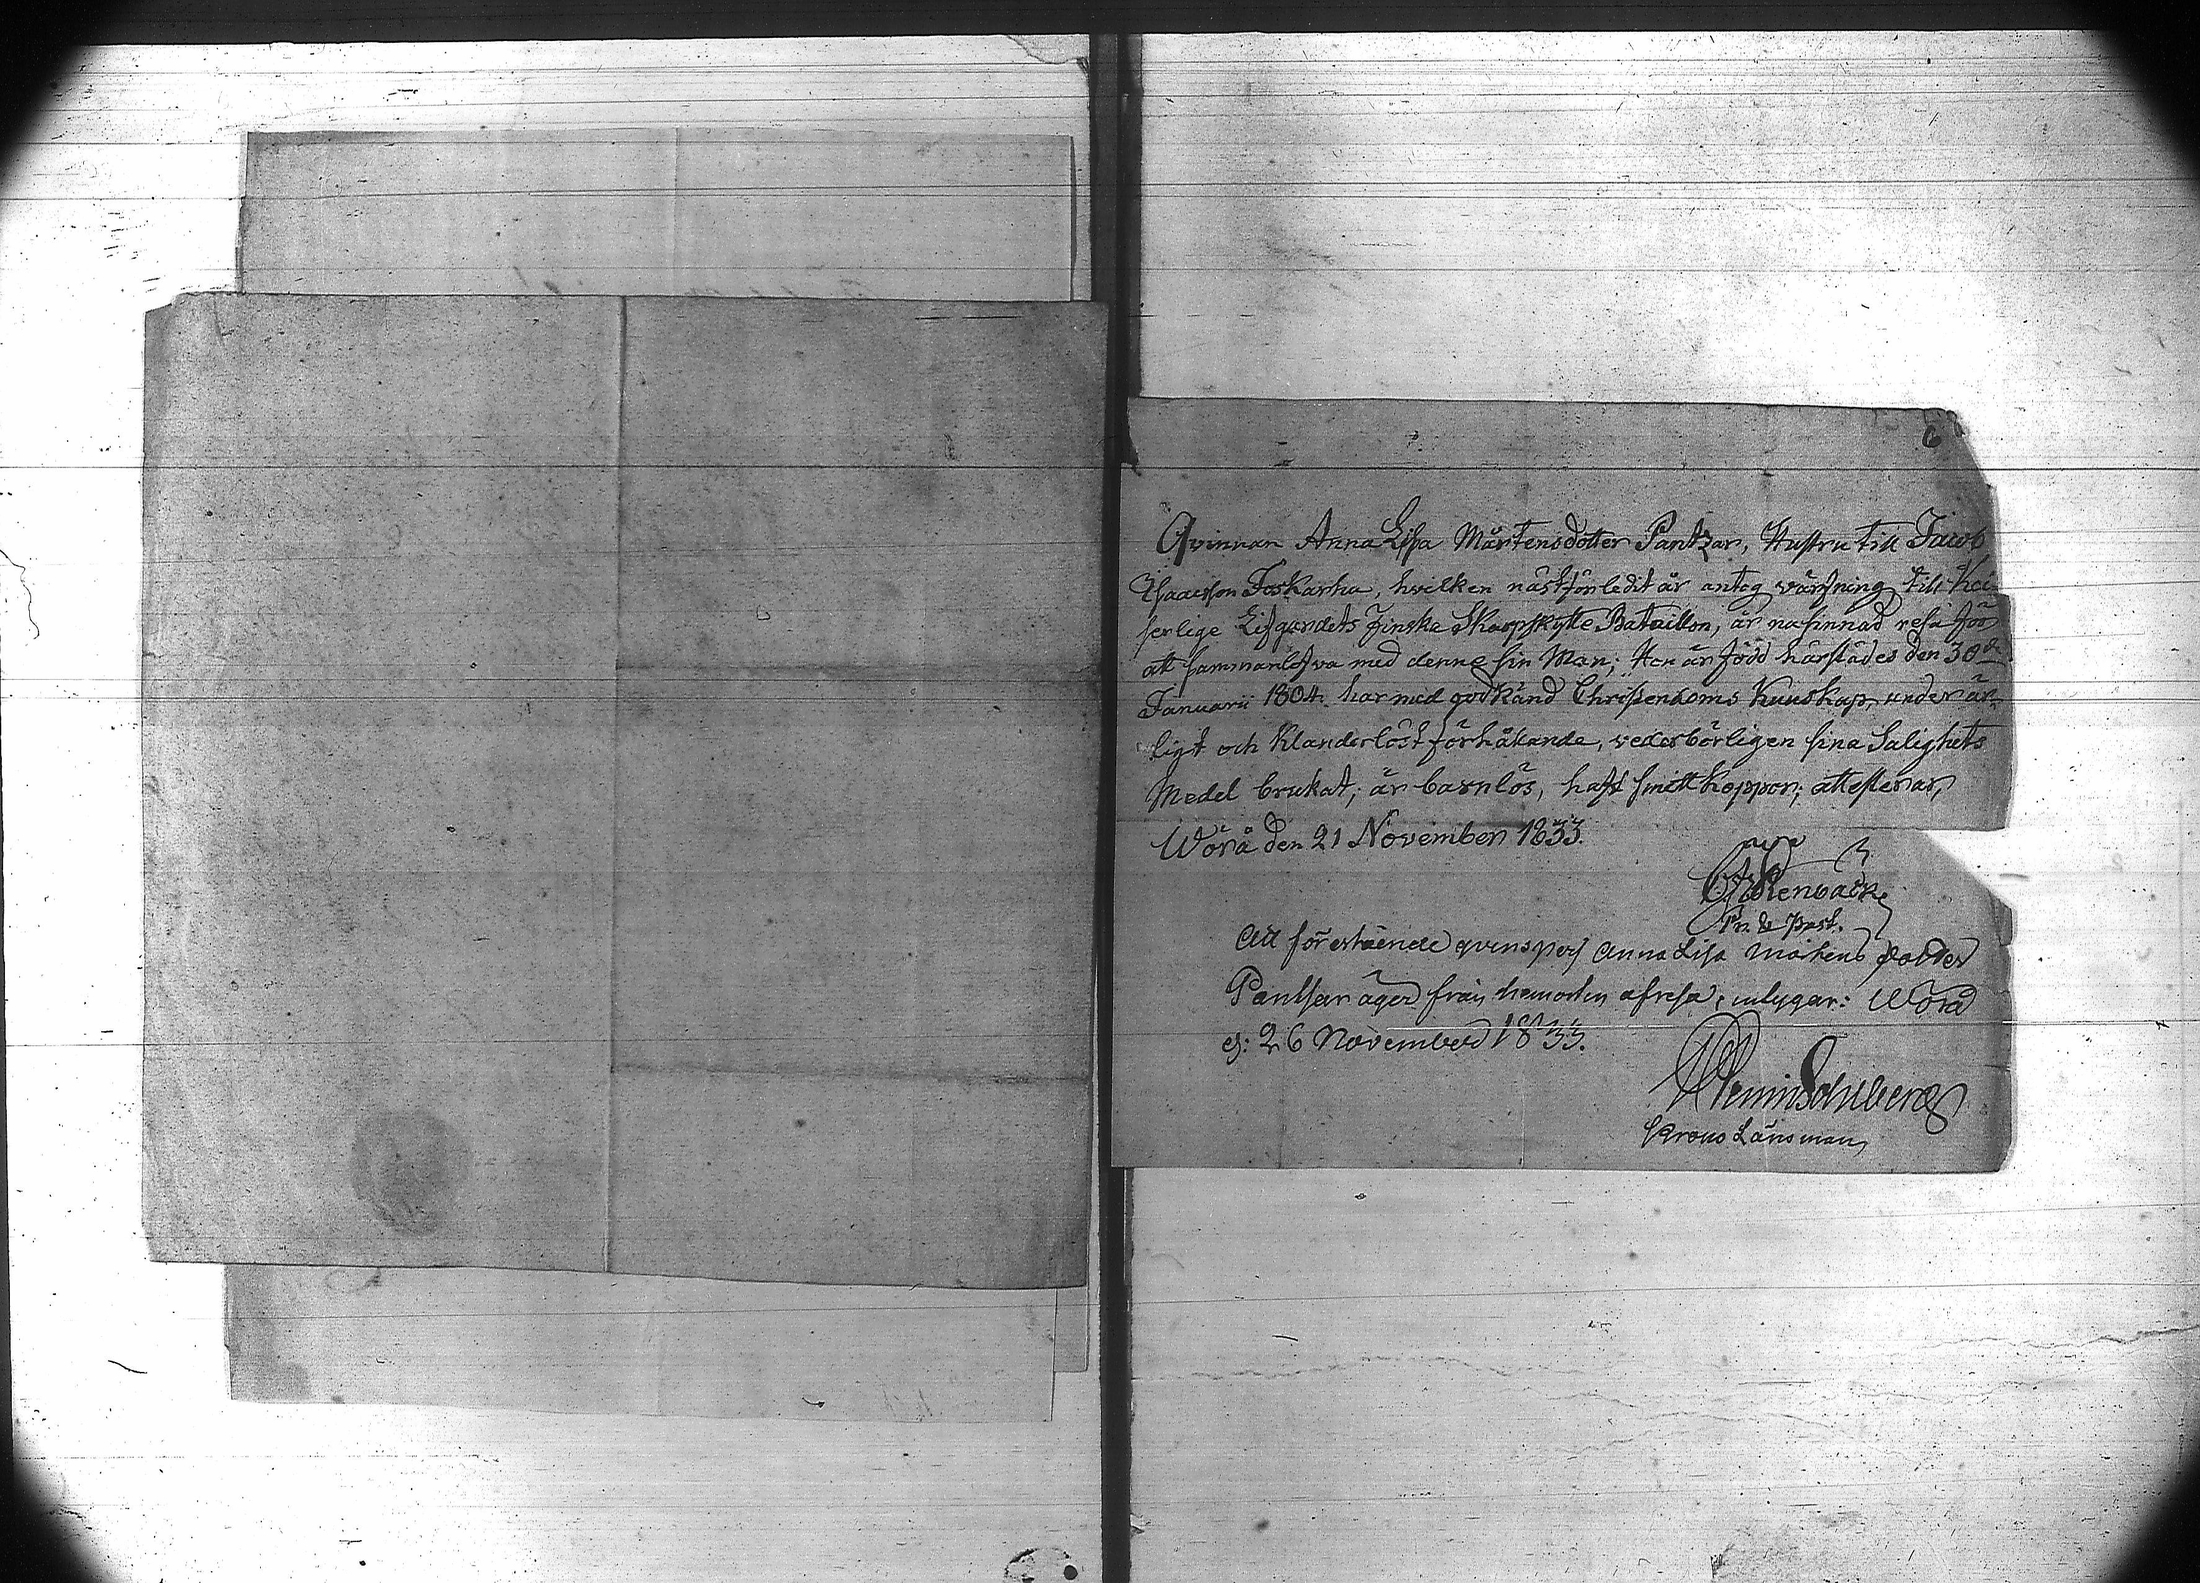 6
Qvinnan Anna Lisa Mårtensdotter Pantzar, Hustru till Jacob
Isaacsson Foskarha, hvilken nästförledit år antog värfning till Kei-
serlige Lifgardets Finska Skarpskytte Bataillon, är nasinnad resa för
att sammanlefva med denne sin Man; Hon är född härstädes den 30de
Januarii 1804. har med godkänd Christendoms Kunskap, under är-
ligt och klanderlöst förhålande, vederbörligen sina Salighets
Medel brukat; är barnlös, haft smittkoppor; attesterar,
Wörå den 21 November 1833.
Att förestående qvinsperß Anna Lisa Mårtens dotter
Pantsar äger från hemorten afresa, intygar: Wörå
d: 26 November 1833.
Krono Länsman